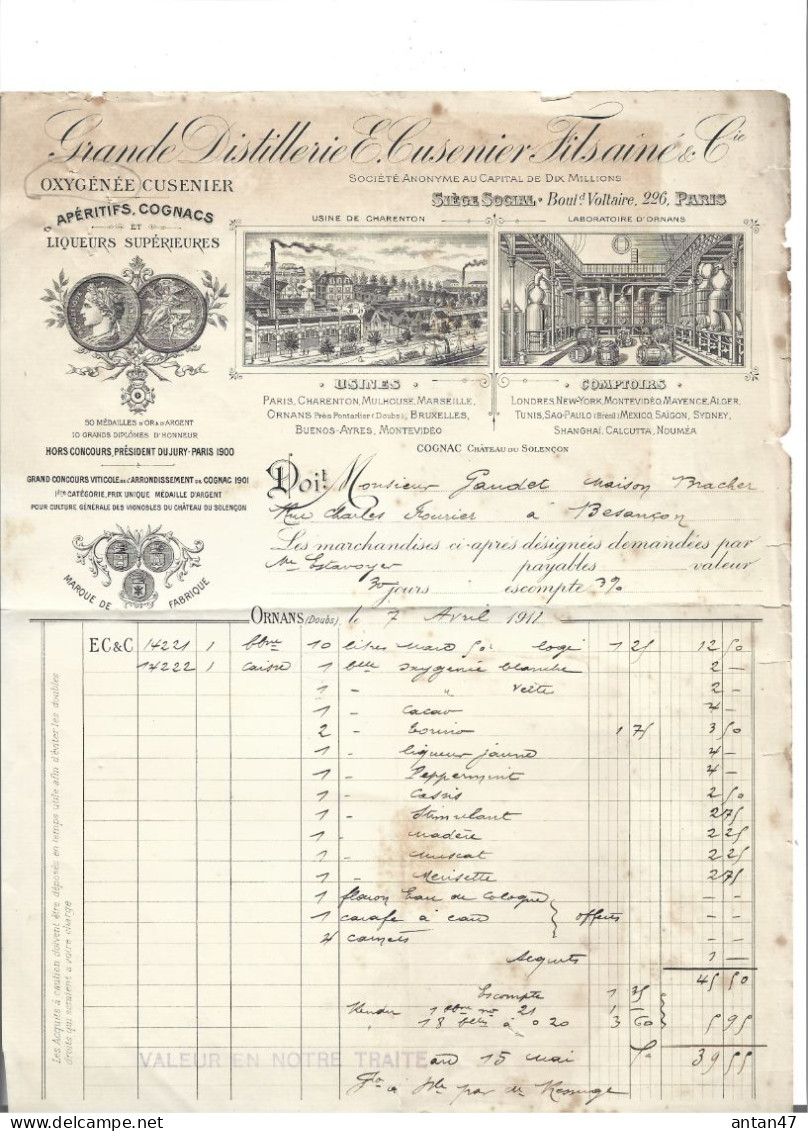 Grande Distillerie E. Cusenier Fils ainé & Cie
OXYGÉNÉE CUSENIER
SOCIÉTÉ ANONYME AU CAPITAL DE DIX MILLIONS
SIÈGE SOCIAL • Bould. Voltaire, 226, PARIS
APÉRITIFS, COGNACS
ET
LIQUEURS SUPÉRIEURES
USINE DE CHARENTON
LABORATOIRE D'ORNANS
50 MÉDAILLES D'OR & D'ARGENT
10 GRANDS DIPLÔMES D'HONNEUR
HORS CONCOURS, PRÉSIDENT DU JURY - PARIS 1900
GRAND CONCOURS VITICOLE DE L'ARRONDISSEMENT DE COGNAC 1901
1ère CATÉGORIE, PRIX UNIQUE MÉDAILLE D'ARGENT
POUR CULTURE GÉNÉRALE DES VIGNOBLES DU CHÂTEAU DU SOLENÇON
MARQUE DE FABRIQUE
USINES
PARIS, CHARENTON, MULHOUSE, MARSEILLE,
ORNANS Près Pontarlier (Doubs), BRUXELLES,
BUENOS-AYRES, MONTEVIDÉO
COMPTOIRS
LONDRES, NEW-YORK, MONTEVIDÉO, MAYENCE, ALGER,
TUNIS, SAO-PAULO (Brésil), MEXICO, SAÏGON, SYDNEY,
SHANGHAÏ, CALCUTTA, NOUMÉA
COGNAC CHÂTEAU DU SOLENÇON
Doit Monsieur Gaudet Maison Bracher
Rue Charles Fourier à Besançon
Les marchandises ci-après désignées demandées par
Mr Estavoyer payables valeur
30 jours escompte 3%
ORNANS (Doubs), le 7 Avril 1911
EC&C 14221 1 bbne 10 litres Marc 50° logé 1 25 12 50
14222 1 caisse 1 blle oxygénée blanche 2 —
1 - " verte 2 —
1 - cacao 4 —
2 - 1 75 3 50
1 - liqueur jaune 4 —
1 - Peppermint 4 —
1 - cassis 2 50
1 - Stimulant 2 75
1 - Madère 2 25
1 - muscat 2 25
1 - Merisette 2 75
1 flacon Eau de Cologne — —
1 carafe à eau offerts — —
4 carnets — —
Acquits 1 —
45 50
Escompte 1 35
Rendu 1 bbne n° 21 1 —
18 blles à 0 20 3 60 5 95
VALEUR EN NOTRE TRAITE au 15 Mai 39 55
Les Acquits à caution doivent être déposés en temps utile afin d'éviter les doubles
droits qui seraient à votre charge.
antan47